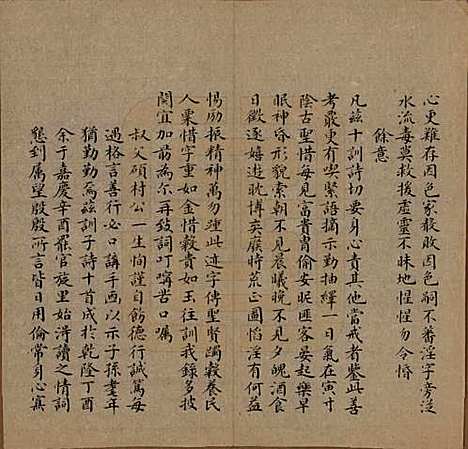 心更難存因色家教敗因色嗣不蕃淫字旁從
水流毒莫救援虛靈不昧地惺惺勿令惛
餘意
凡茲十訓詩切要身心責其他當戒者鑒此善
考覈更有喫緊語摘示勤抽繹一日氣在寅寸
陰古聖惜每見富貴胄偷安昵匪客晏起樂早
眠神昏形貌索朝不見晨曦晚不見夕醜酒食
日徵逐嬉遊耽博英廢時荒正圖慆淫有何益
惕勵振精神萬勿踵此迹字傳聖賢蠲穀養民
人粟惜字重如金惜穀貴如玉往訓我錄多披
閱宜加勗為爾再致詞叮嚀苦口囑
叔父碩村公一生恂謹自飭德行誠篤每
遇格言善行必口講手画以示子孫耄年
猶勤勤為茲訓子詩十首成於乾隆丁酉
余于嘉慶辛酉罷官旋里始得讀之情詞
懇到屬望殷殷所言皆日用倫常身心寔